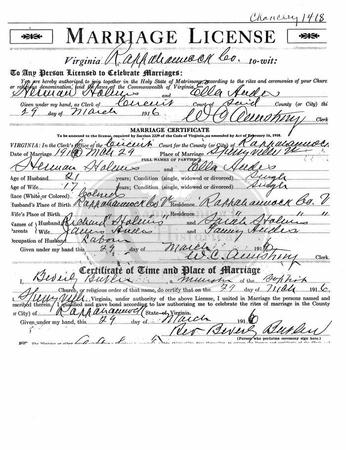 Chancery 1418
MARRIAGE LICENSE
Virginia, Rappahannock Co. to-wit:
To Any Person Licensed to Celebrate Marriages:
You are hereby authorized to join together in the Holy State of Matrimony, according to the rites and ceremonies of your Church
or religious denomination, and the laws of the Commonwealth of Virginia,
Herman Holmes and Ella
Given under my hand, as Clerk of Circuit Court of Said County (or City) this
29 day of March 1916
W C Armstrong Clerk
MARRIAGE CERTIFICATE
VIRGINIA: In the Clerk's Office of the Circuit Court for the County (or City) of Rappahannock
Date of Marriage 1916 Mar 29 Place of Marriage Sperryville Va
FULL NAMES OF PARTIES
Herman Holmes and Ella
Age of Husband 21 years; Condition (single, widowed or divorced) Single
Age of Wife 17 years; Condition (single, widowed or divorced) Single
Race (White or Colored) Colored
Husband's Place of Birth Rappahannock Co. V Residence Rappahannock Co. V
Wife's Place of Birth " " Residence " "
Names of Husband Richard Holmes and Sarah Holmes
Parents Wife James and Fanny
Occupation of Husband Labor
Given under my hand this 29 day of March 1916
W. C. Armstrong Clerk
Certificate of Time and Place of Marriage
I, Beverly Butler a minister of the Baptist
Church, or religious order of that name, do certify that on the 29 day of Mar 1916
Sperryville, Virginia, under authority of the above License, I united in Marriage the persons named and
described therein. I qualified and gave bond according to law authorizing me to celebrate the rites of marriage in the County
(or City) of Rappahannock State of Virginia.
Given under my hand this 29 day of March 1916
Rev Beverly Butler
(Person who performs ceremony sign here.)